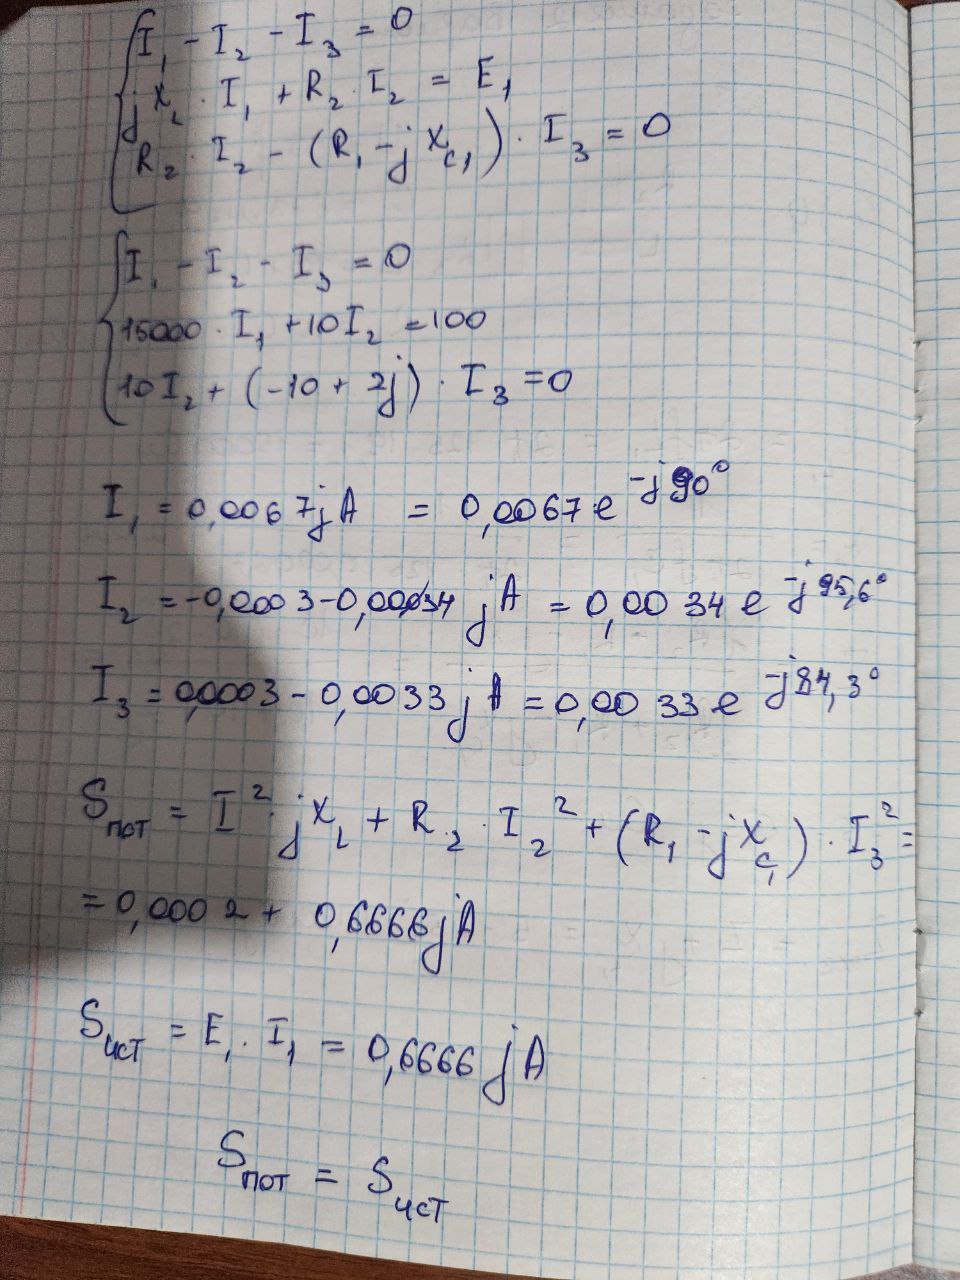 I₁ - I₂ - I₃ = 0
jX_L · I₁ + R₂ · I₂ = E₁
R₂ · I₂ - (R₁ - jX_C₁) · I₃ = 0
I₁ - I₂ - I₃ = 0
15000 · I₁ + 10I₂ = 100
10I₂ + (-10 + 2j) · I₃ = 0
I₁ = 0,0067jA = 0,0067e^(-j90°)
I₂ = -0,0003 - 0,0034 jA = 0,0034e^(-j95,6°)
I₃ = 0,0003 - 0,0033jA = 0,0033e^(-j84,3°)
S_пот = I² · jX_L + R₂ · I₂² + (R₁ - jX_C₁) · I₃² =
= 0,0002 + 0,6666jA
S_ист = E₁ · I₁ = 0,6666jA
S_пот = S_ист